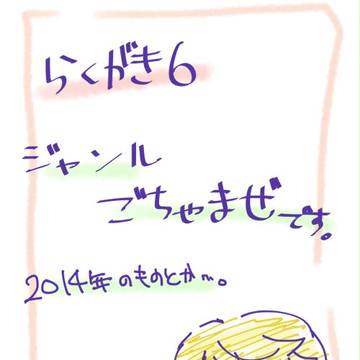 らくがき6
ジャンル
ごちゃまぜです。
2014年のものとか〜。